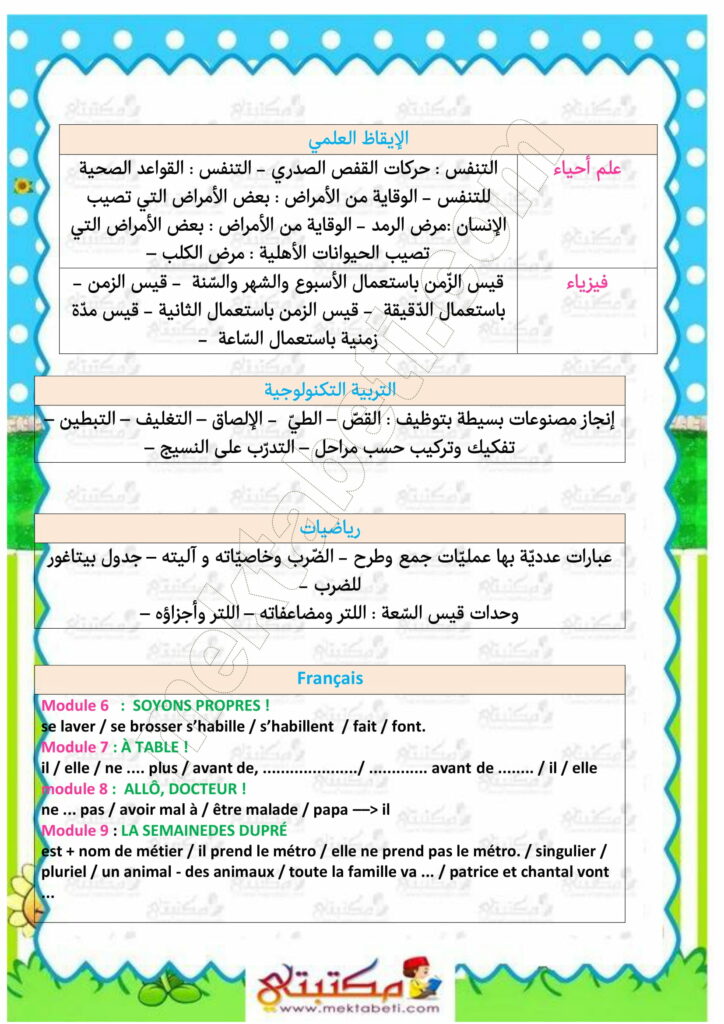 الإيقاظ العلمي
علم أحياء
التنفس : حركات القفص الصدري – التنفس : القواعد الصحية
للتنفس – الوقاية من الأمراض : بعض الأمراض التي تصيب
الإنسان :مرض الرمد – الوقاية من الأمراض : بعض الأمراض التي
تصيب الحيوانات الأهلية : مرض الكلب –
فيزياء
قيس الزّمن باستعمال الأسبوع والشهر والسّنة – قيس الزمن –
باستعمال الدّقيقة – قيس الزمن باستعمال الثانية – قيس مدّة
زمنية باستعمال السّاعة –
التربية التكنولوجية
إنجاز مصنوعات بسيطة بتوظيف : القصّ – الطيّ – الإلصاق – التغليف – التبطين –
تفكيك وتركيب حسب مراحل – التدرّب على النسيج –
رياضيات
عبارات عدديّة بها عمليّات جمع وطرح – الضّرب وخاصيّاته و آليته – جدول بيتاغور
للضرب –
وحدات قيس السّعة : اللتر ومضاعفاته – اللتر وأجزاؤه –
Français
Module 6 : SOYONS PROPRES !
se laver / se brosser s’habille / s’habillent / fait / font.
Module 7 : À TABLE !
il / elle / ne .... plus / avant de, ...................../ ............. avant de ........ / il / elle
module 8 : ALLÔ, DOCTEUR !
ne ... pas / avoir mal à / être malade / papa —> il
Module 9 : LA SEMAINEDES DUPRÉ
est + nom de métier / il prend le métro / elle ne prend pas le métro. / singulier /
pluriel / un animal - des animaux / toute la famille va ... / patrice et chantal vont
...
mektabeti.com
مكتبتي
www.mektabeti.com